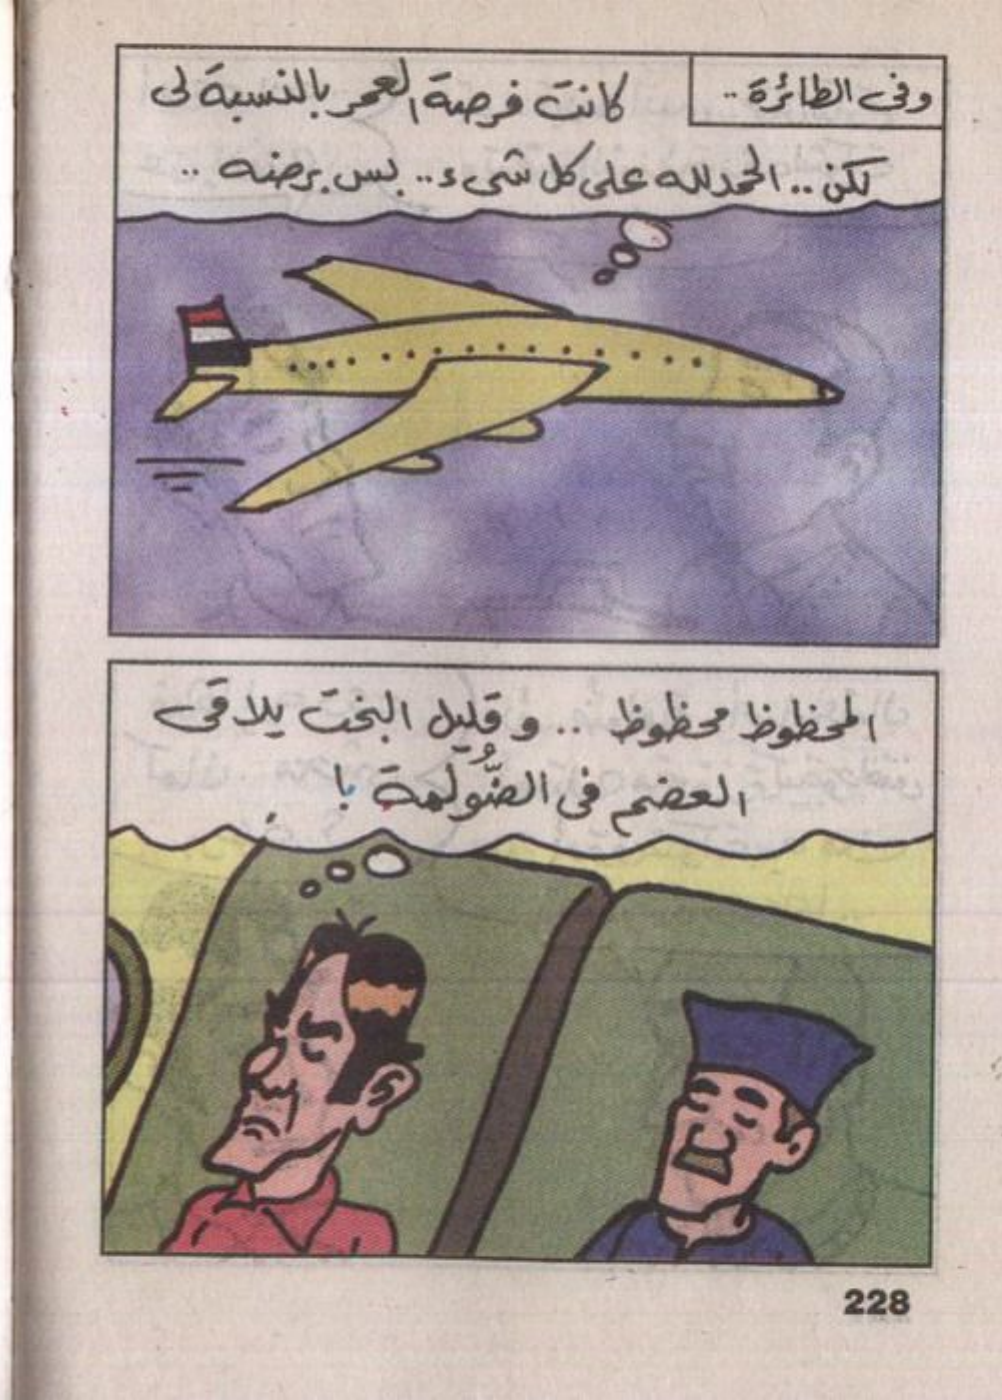 وفى الطائرة ..
كانت فرصة العمر بالنسبة لى
لكن .. الحمدلله على كل شىء .. بس برضه ..
المحظوظ محظوظ .. و قليل البخت يلاقى
العضم فى الضُّولمة با !
228